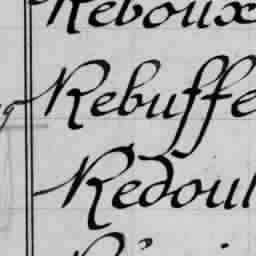 Reboux
Rebuffe
Redoul